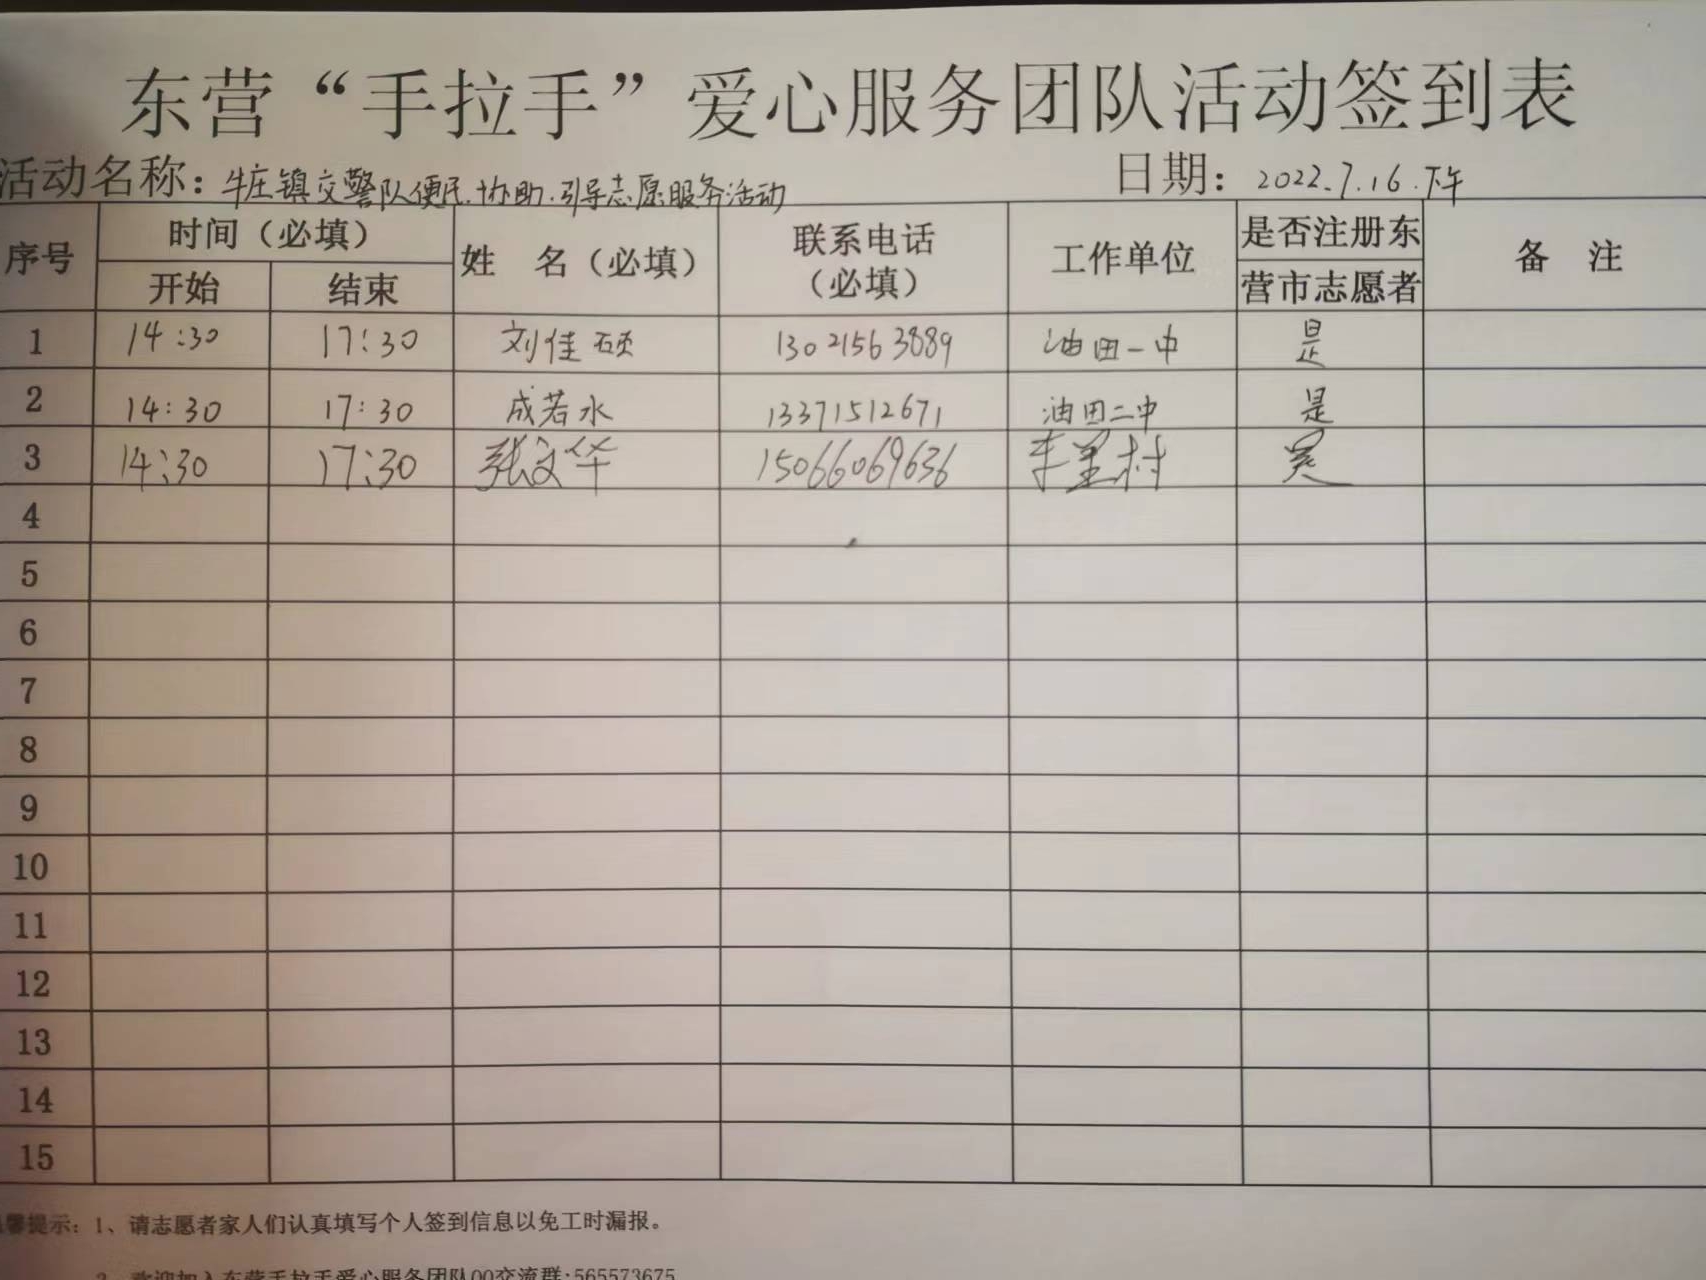 东营“手拉手”爱心服务团队活动签到表
活动名称：牛庄镇交警队便民.协助.引导志愿服务活动 日期：2022.7.16.下午
序号 时间（必填） 姓 名（必填） 联系电话（必填） 工作单位 是否注册东营市志愿者 备 注
开始 结束
1 14:30 17:30 刘佳硕 13021563889 油田一中 是
2 14:30 17:30 成若水 13371512671 油田二中 是
3 14:30 17:30 张文华 15066069636 村 是
4
5
6
7
8
9
10
11
12
13
14
15
馨提示：1、请志愿者家人们认真填写个人签到信息以免工时漏报。
2、欢迎加入东营手拉手爱心服务团队QQ交流群:565573675